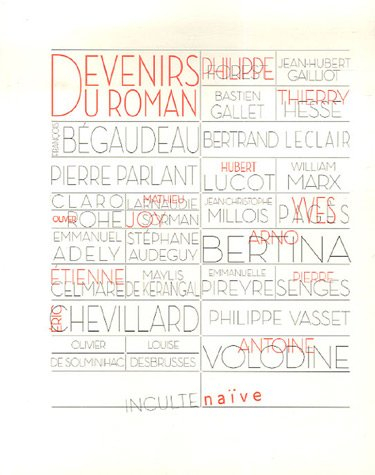 DEVENIRS
DU ROMAN
PHILIPPE
FOREST
JEAN-HUBERT
GAILLIOT
BASTIEN
GALLET
THIERRY
HESSE
FRANÇOIS
BÉGAUDEAU
BERTRAND LECLAIR
PIERRE PARLANT
HUBERT
LUCOT
WILLIAM
MARX
CLARO
MATHIEU
LARNAUDIE
OLIVIER
ROHE
JOY
SORMAN
JEAN-CHRISTOPHE
MILLOIS
YVES
PAGÈS
EMMANUEL
ADELY
STÉPHANE
AUDEGUY
ARNO
BERTINA
ÉTIENNE
CELMARE
MAYLIS
DE KERANGAL
EMMANUELLE
PIREYRE
PIERRE
SENGES
ÉRIC
CHEVILLARD
PHILIPPE VASSET
OLIVIER
DE SOLMINIHAC
LOUISE
DESBRUSSES
ANTOINE
VOLODINE
INCULTE naïve